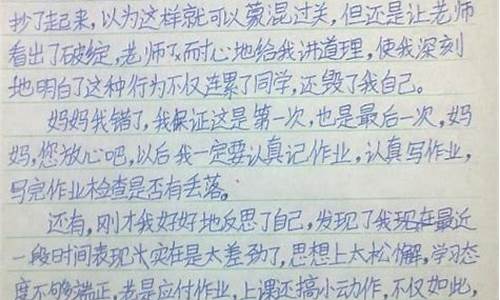 抄了起来，以为这样就可以蒙混过关，但还是让老师
看出了破绽，老师又耐心地给我讲道理，使我深刻
地明白了这种行为不仅连累了同学，还毁了我自己。
妈妈我错了，我保证这是第一次，也是最后一次，妈
妈，您放心吧，以后我一定要认真记作业，认真写作业，
写完作业检查是否有丢落。
还有，刚才我好好地反思了自己，发现了我现在最近
一段时间表现实在是太差劲了，思想上太松懈，学习态
度不够端正，老是应付作业，上课还搞小动作，不仅如此，